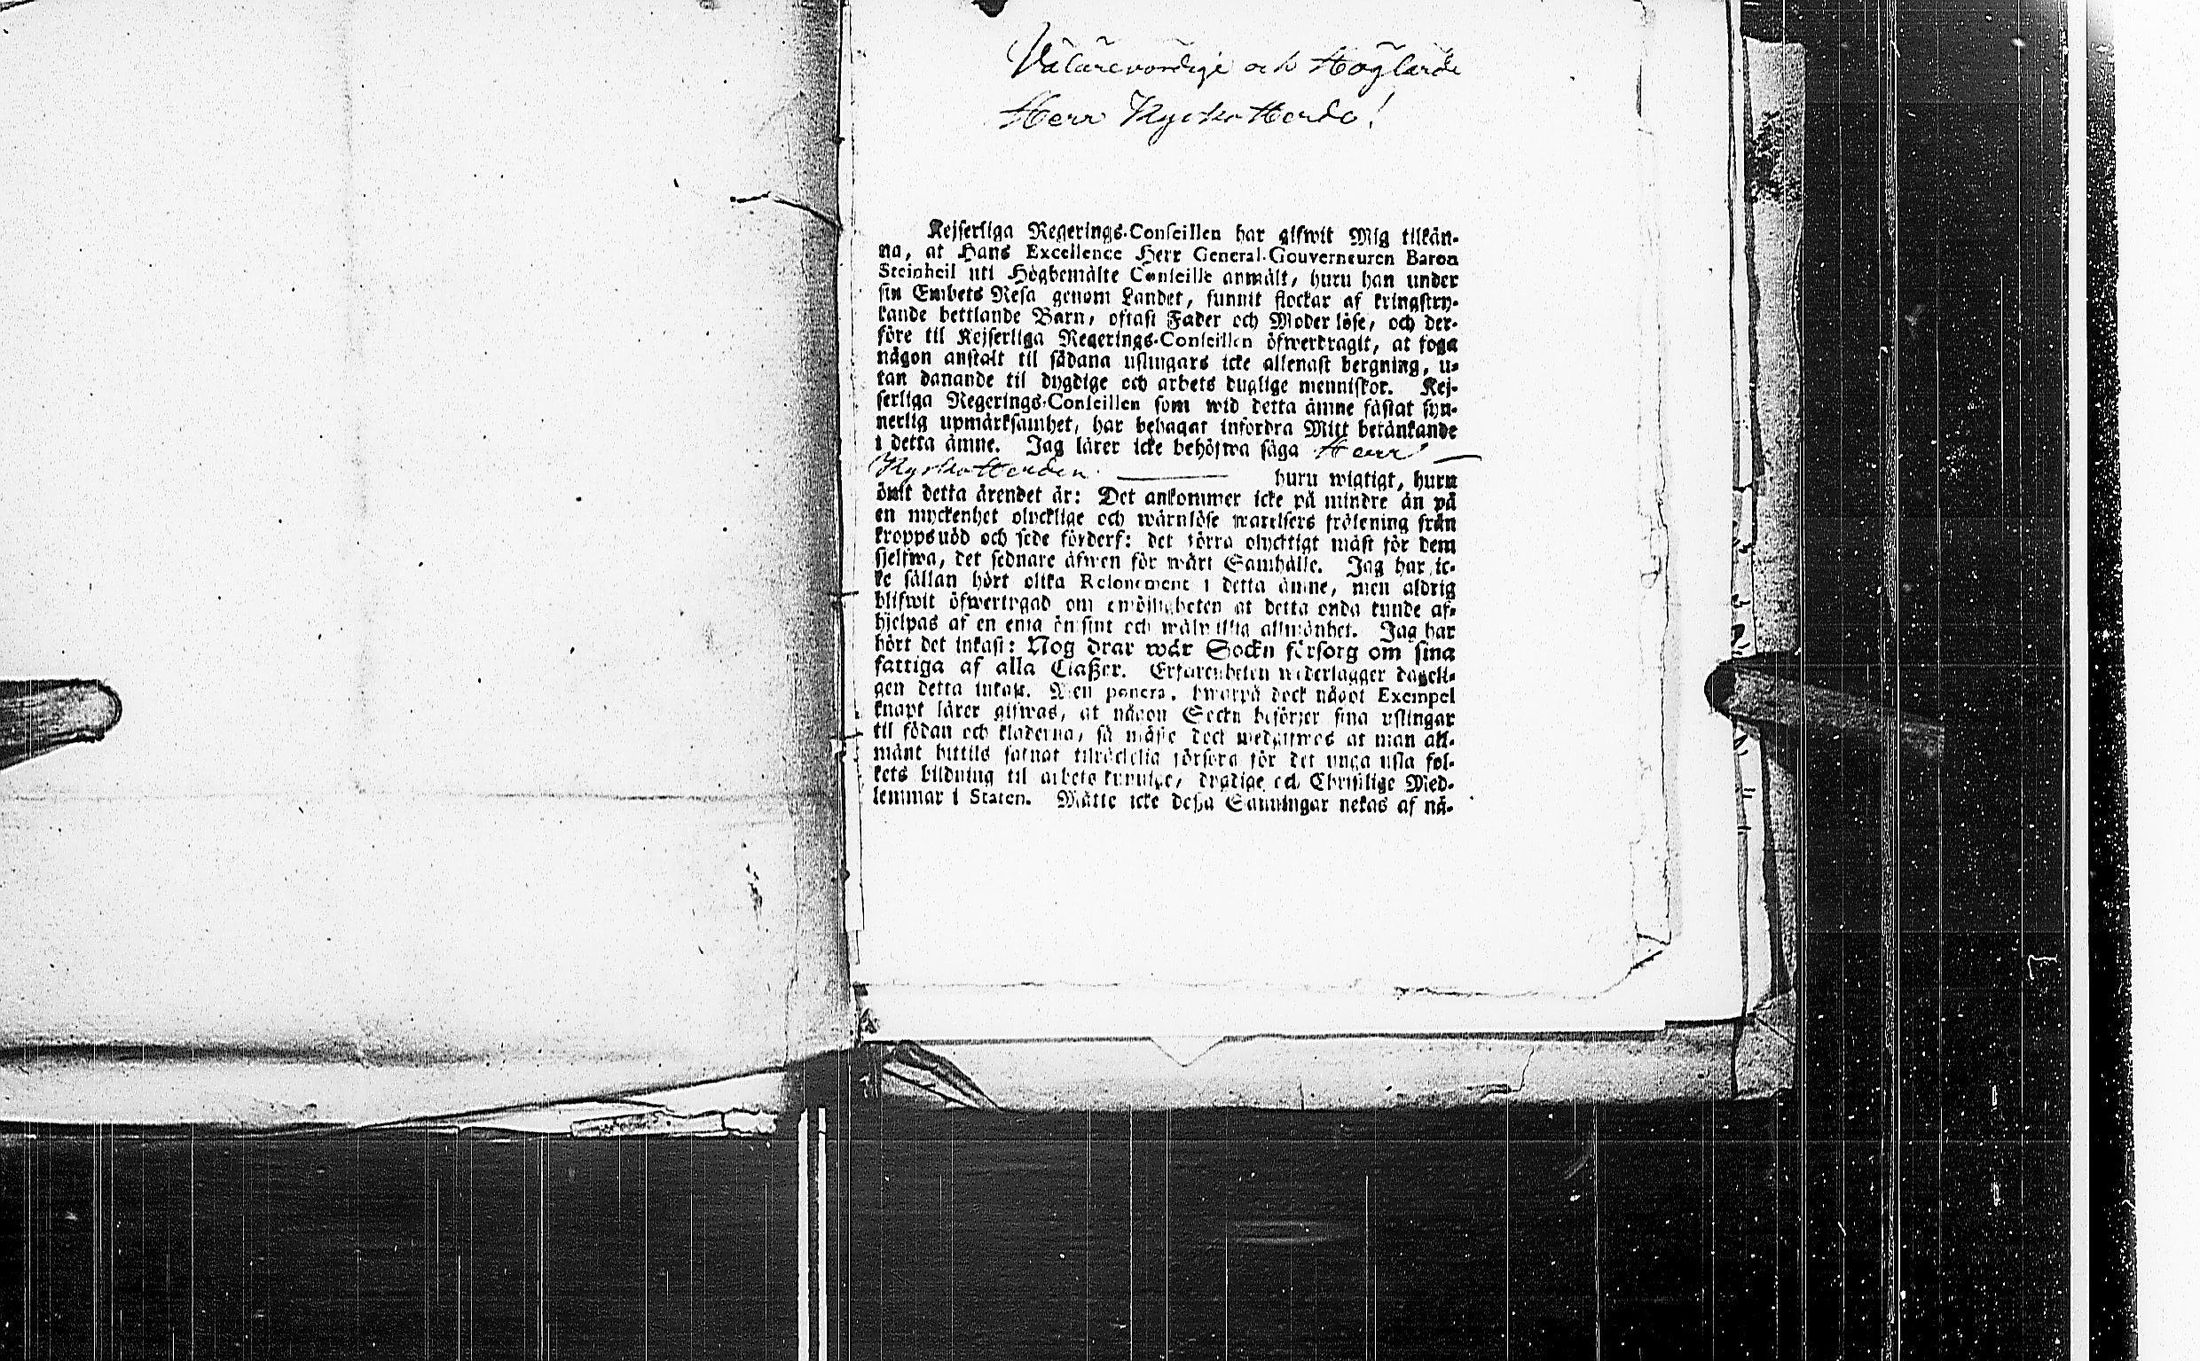 Välärevördige och Höglärde
Herr Kyrko Herde!
Kejserliga Regerings-Conseillen har gifwit Mig tilkän-
na, at Hans Excellence Herr General-Gouverneuren Baron
Steinheil uti Högbemälte Conseille anmält, huru han under
sin Embets Resa genom Landet, funnit flockar af kringstry-
kande bettlande Barn, oftast Fader och Moder löse, och der-
före til Kejserliga Regerings-Conseillen öfwerdragit, at foga
någon anstalt til sådana uslingars icke allenast bergning, u-
tan danande til dygdige och arbets duglige menniskor. Kej-
serliga Regerings-Conseillen som wid detta ämne fästat syn-
nerlig upmärksamhet, har behagat infordra Mitt betänkande
i detta ämne. Jag lärer icke behöfwa säga Herr
Kyrko Herden huru wigtigt, huru
ömt detta ärendet är: Det ankommer icke på mindre än på
en myckenhet olycklige och wärnlöse warelsers frälsning från
kroppsnöd och sede förderf: det förra olyckligt mäst för dem
sjelfwa, det sednare äfwen för wårt Samhälle. Jag har ic-
ke sällan hört olika Raisonement i detta ämne, men aldrig
blifwit öfwertygad om omöjligheten at detta onda kunde af-
hjelpas af en enda ömsint och wälwillig allmänhet. Jag har
hört det inkast: Nog drar wår Sockn försorg om sina
fattiga af alla Claßer. Erfarenheten wederlägger dageli-
gen detta inkast. Men ponera, hwarpå dock något Exempel
knapt lärer gifwas, at någon Sockn besörjer sina uslingar
til födan och kläderna, så måste dock medgifwas at man all-
mänt hittils saknat tilräckelig försorg för det unga usla fol-
kets bildning til arbets kunnige, dygdige och Christlige Med-
lemmar i Staten. Måtte icke deßa Sanningar nekas af nå-